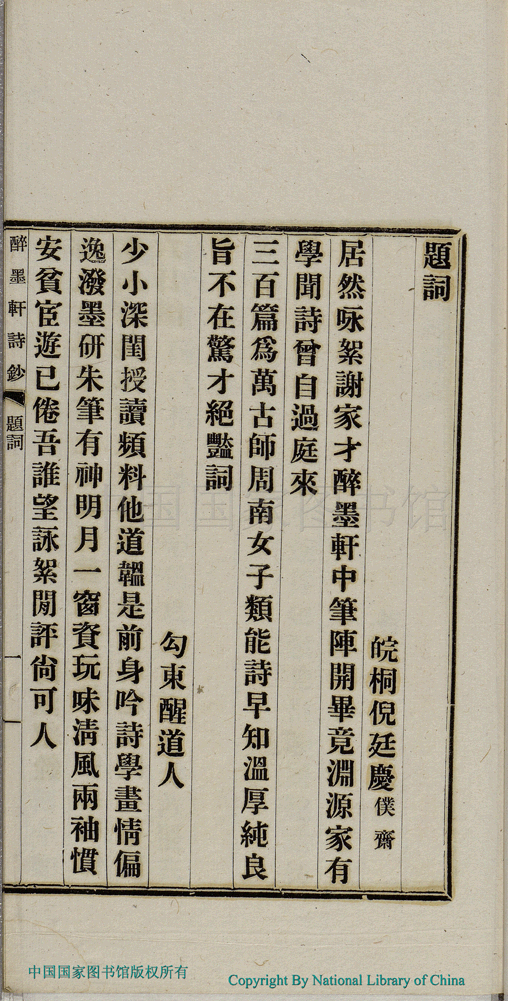 題詞
皖桐倪廷慶僕齋
居然咏絮謝家才醉墨軒中筆陣開畢竟淵源家有
學聞詩曾自過庭來
三百篇爲萬古師周南女子類能詩早知溫厚純良
旨不在驚才絕豔詞
勾東醒道人
少小深閨授讀頻料他道韞是前身吟詩學畫情偏
逸潑墨研朱筆有神明月一窗資玩味淸風兩袖慣
安貧宦遊已倦吾誰望詠絮閒評尙可人
醉墨軒詩鈔 題詞 一
国国家图书馆
中国国家图书馆版权所有
Copyright By National Library of China